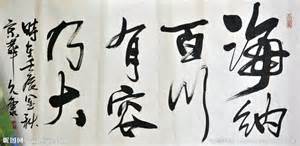 海納
百川
有容
乃大
時在壬辰金秋
京華
昵图网